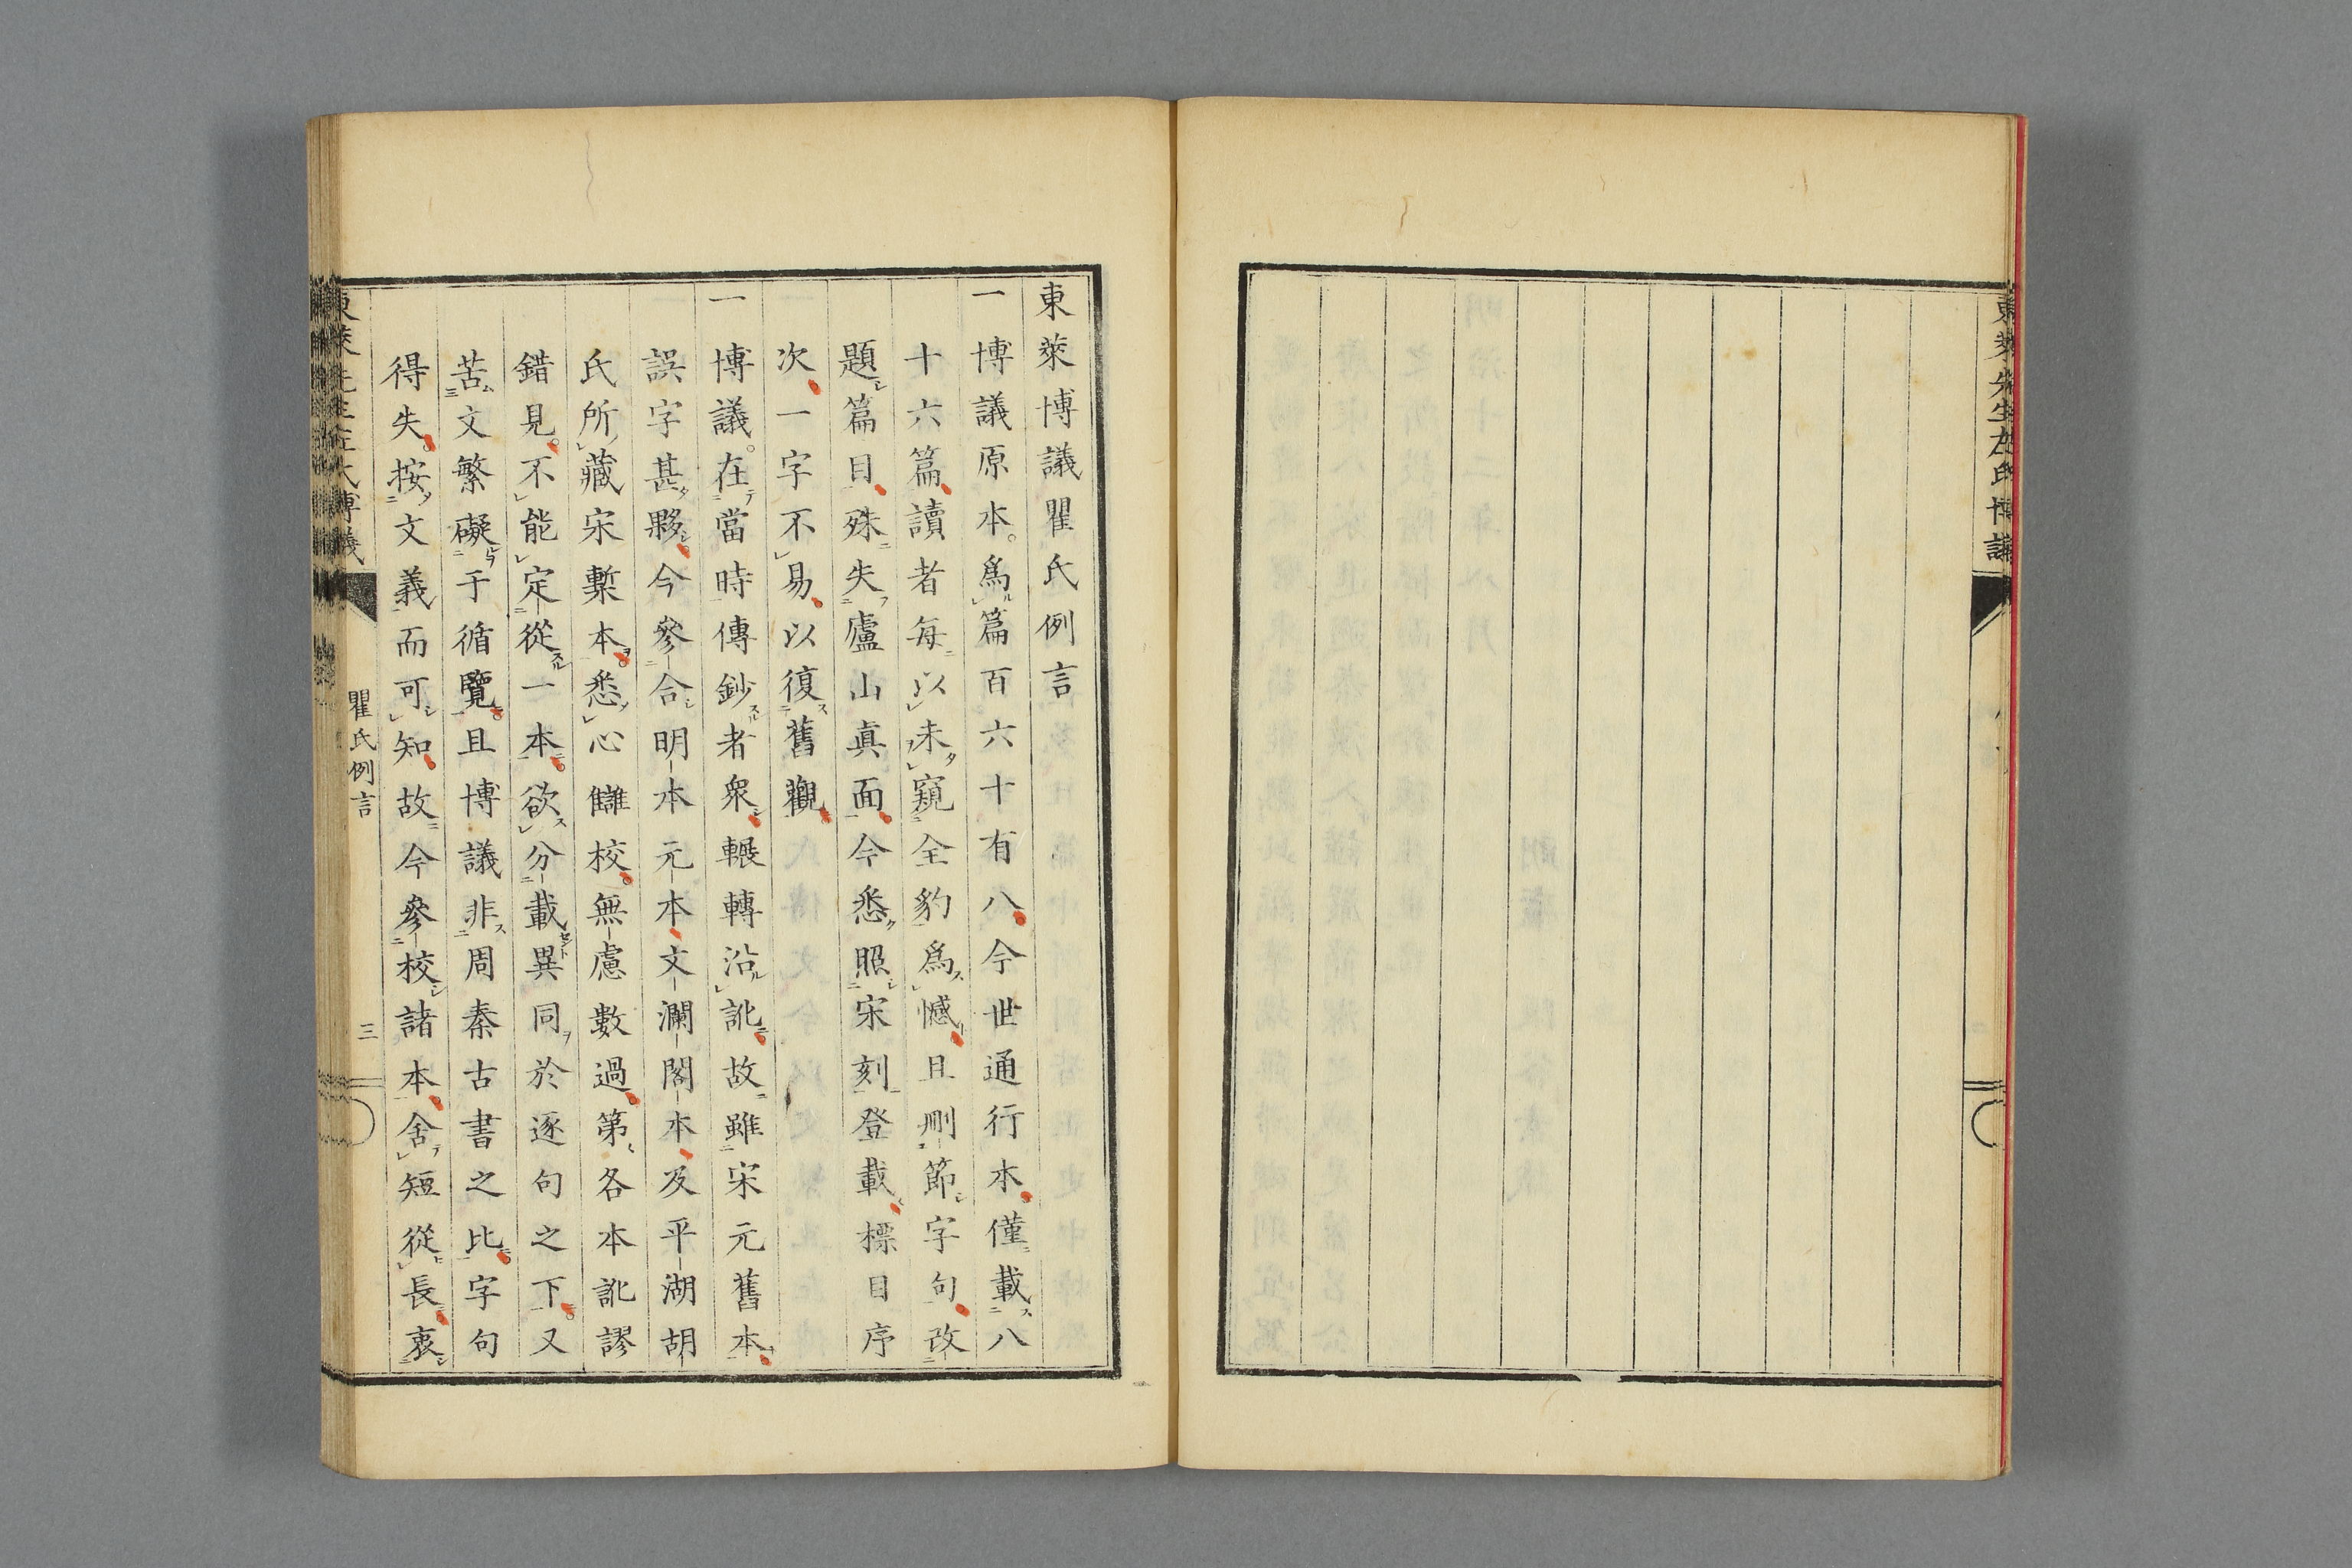 東萊先生左氏博議
東萊博議瞿氏例言
一博議原本。爲篇百六十有八。今世通行本。僅載八
十六篇讀者每以未窺全豹爲憾且刪節字句改
題篇目殊失廬山眞面今悉照宋刻登載標目序
次一字不易以復舊觀
一博議。在當時傳鈔者衆輾轉沿訛故雖宋元舊本
誤字甚夥。今參合明本元本文瀾閣本及平湖胡
氏所藏宋槧本。悉心讎校。無慮數過。第各本訛謬
錯見。不能定從一本。欲分載異同於逐句之下。又
苦文繁礙于循覽。且博議非周秦古書之比。字句
得失。按文義而可知。故今參校諸本。舍短從長。衷
東萊先生左氏博議
瞿氏例言
三